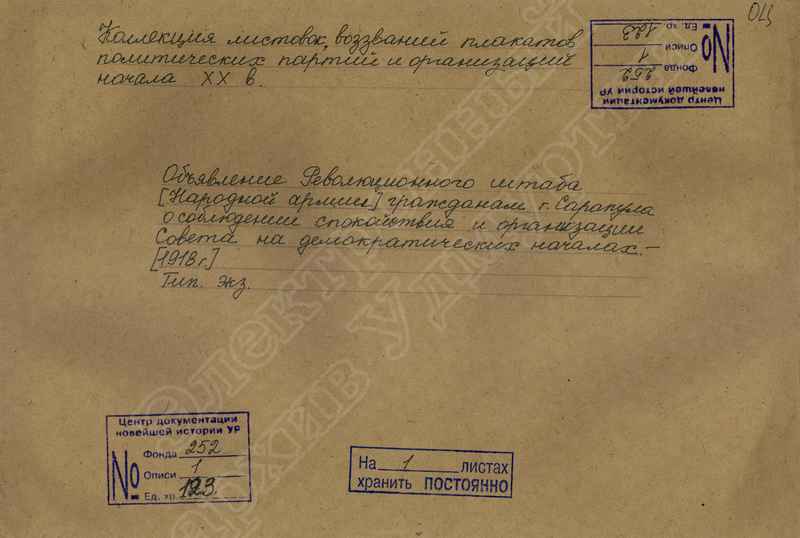 ОЦ
Коллекция листовок, воззваний плакатов
политических партий и организаций
начала XX в.
Центр документации
новейшей истории УР
№
Фонда 252
Описи 1
Ед. хр. 123
Объявление Революционного штаба
[Народной армии] гражданам г. Сарапула
о соблюдении спокойствия и организации
Совета на демократических началах. —
[1918 г.]
Тип. экз.
Центр документации
новейшей истории УР
№
Фонда 252
Описи 1
Ед. хр. 123.
На 1 листах
хранить ПОСТОЯННО
Электронный
архив Удмуртии